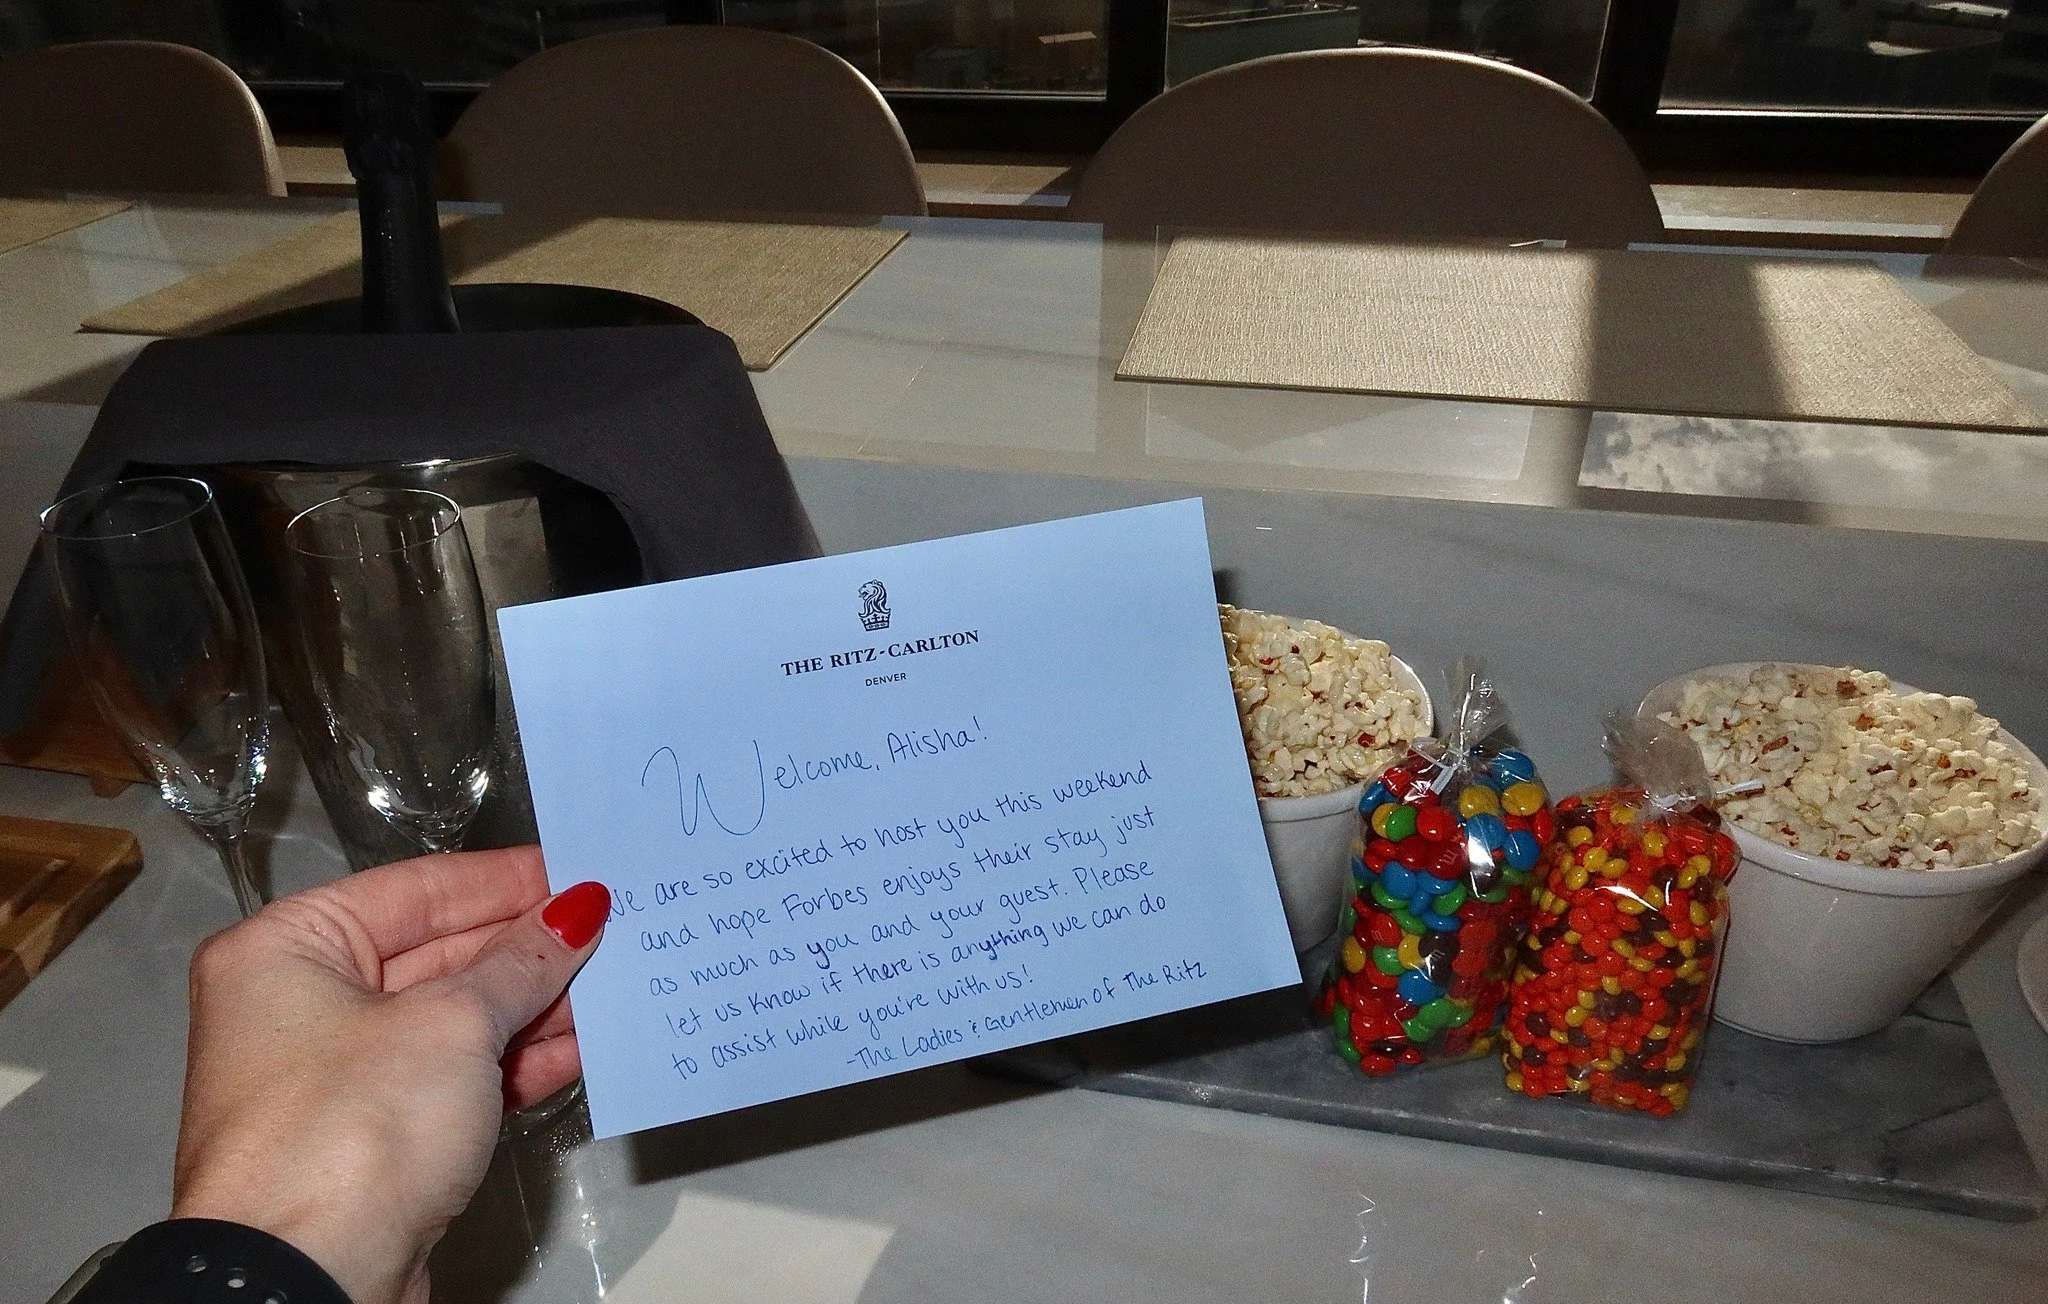 THE RITZ-CARLTON
DENVER
Welcome, Alisha!
We are so excited to host you this weekend
and hope Forbes enjoys their stay just
as much as you and your guest. Please
let us know if there is anything we can do
to assist while you're with us!
-The Ladies & Gentlemen of The Ritz